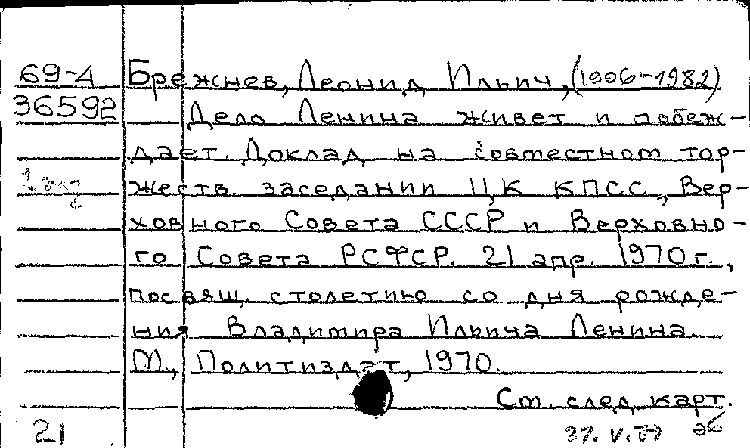 69-4 Брежнев, Леонид Ильич, (1906-1982)
36592 Дело Ленина живет и побеж-
дает. Доклад на совместном тор-
1 экз жеств. заседании ЦК КПСС, Вер-
ховного Совета СССР и Верховно-
го Совета РСФСР. 21 апр. 1970 г.,
посвящ. столетию со дня рожде-
ния Владимира Ильича Ленина.
М., Политиздат, 1970.
См. след. карт.
21